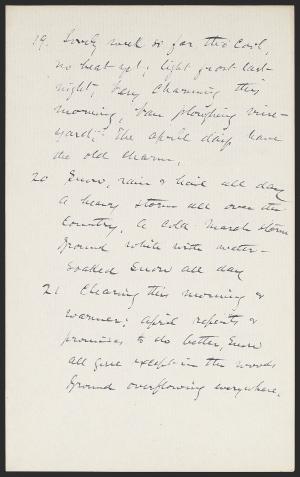 19. Lovely week so far tho' cool,
no heat yet; light frost last
night; Very charming this
morning, Van ploughing vine-
yard; The april days have
the old charm.
20 Snow, rain & hail all day
a heavy storm all over the
Country, a cold March storm
Ground white with water-
soaked snow all day
21 Clearing this morning &
warmer; april repents &
promises to do better, Snow
all gone except in the woods
Ground overflowing everywhere.